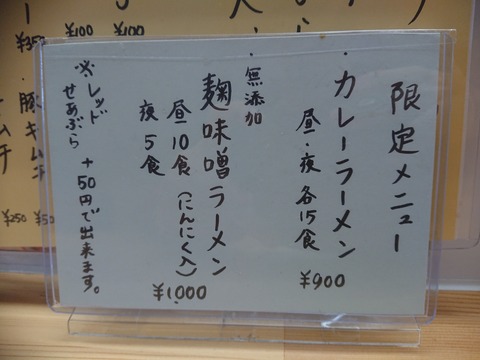 限定メニュー
・カレーラーメン
昼・夜 各15食
¥900
・無添加
麹味噌ラーメン
(にんにく入)
昼10食
夜5食
¥1,000
※レッド
せあぶら +50円で出来ます。
¥100
¥100
¥350
豚キムチ
¥250